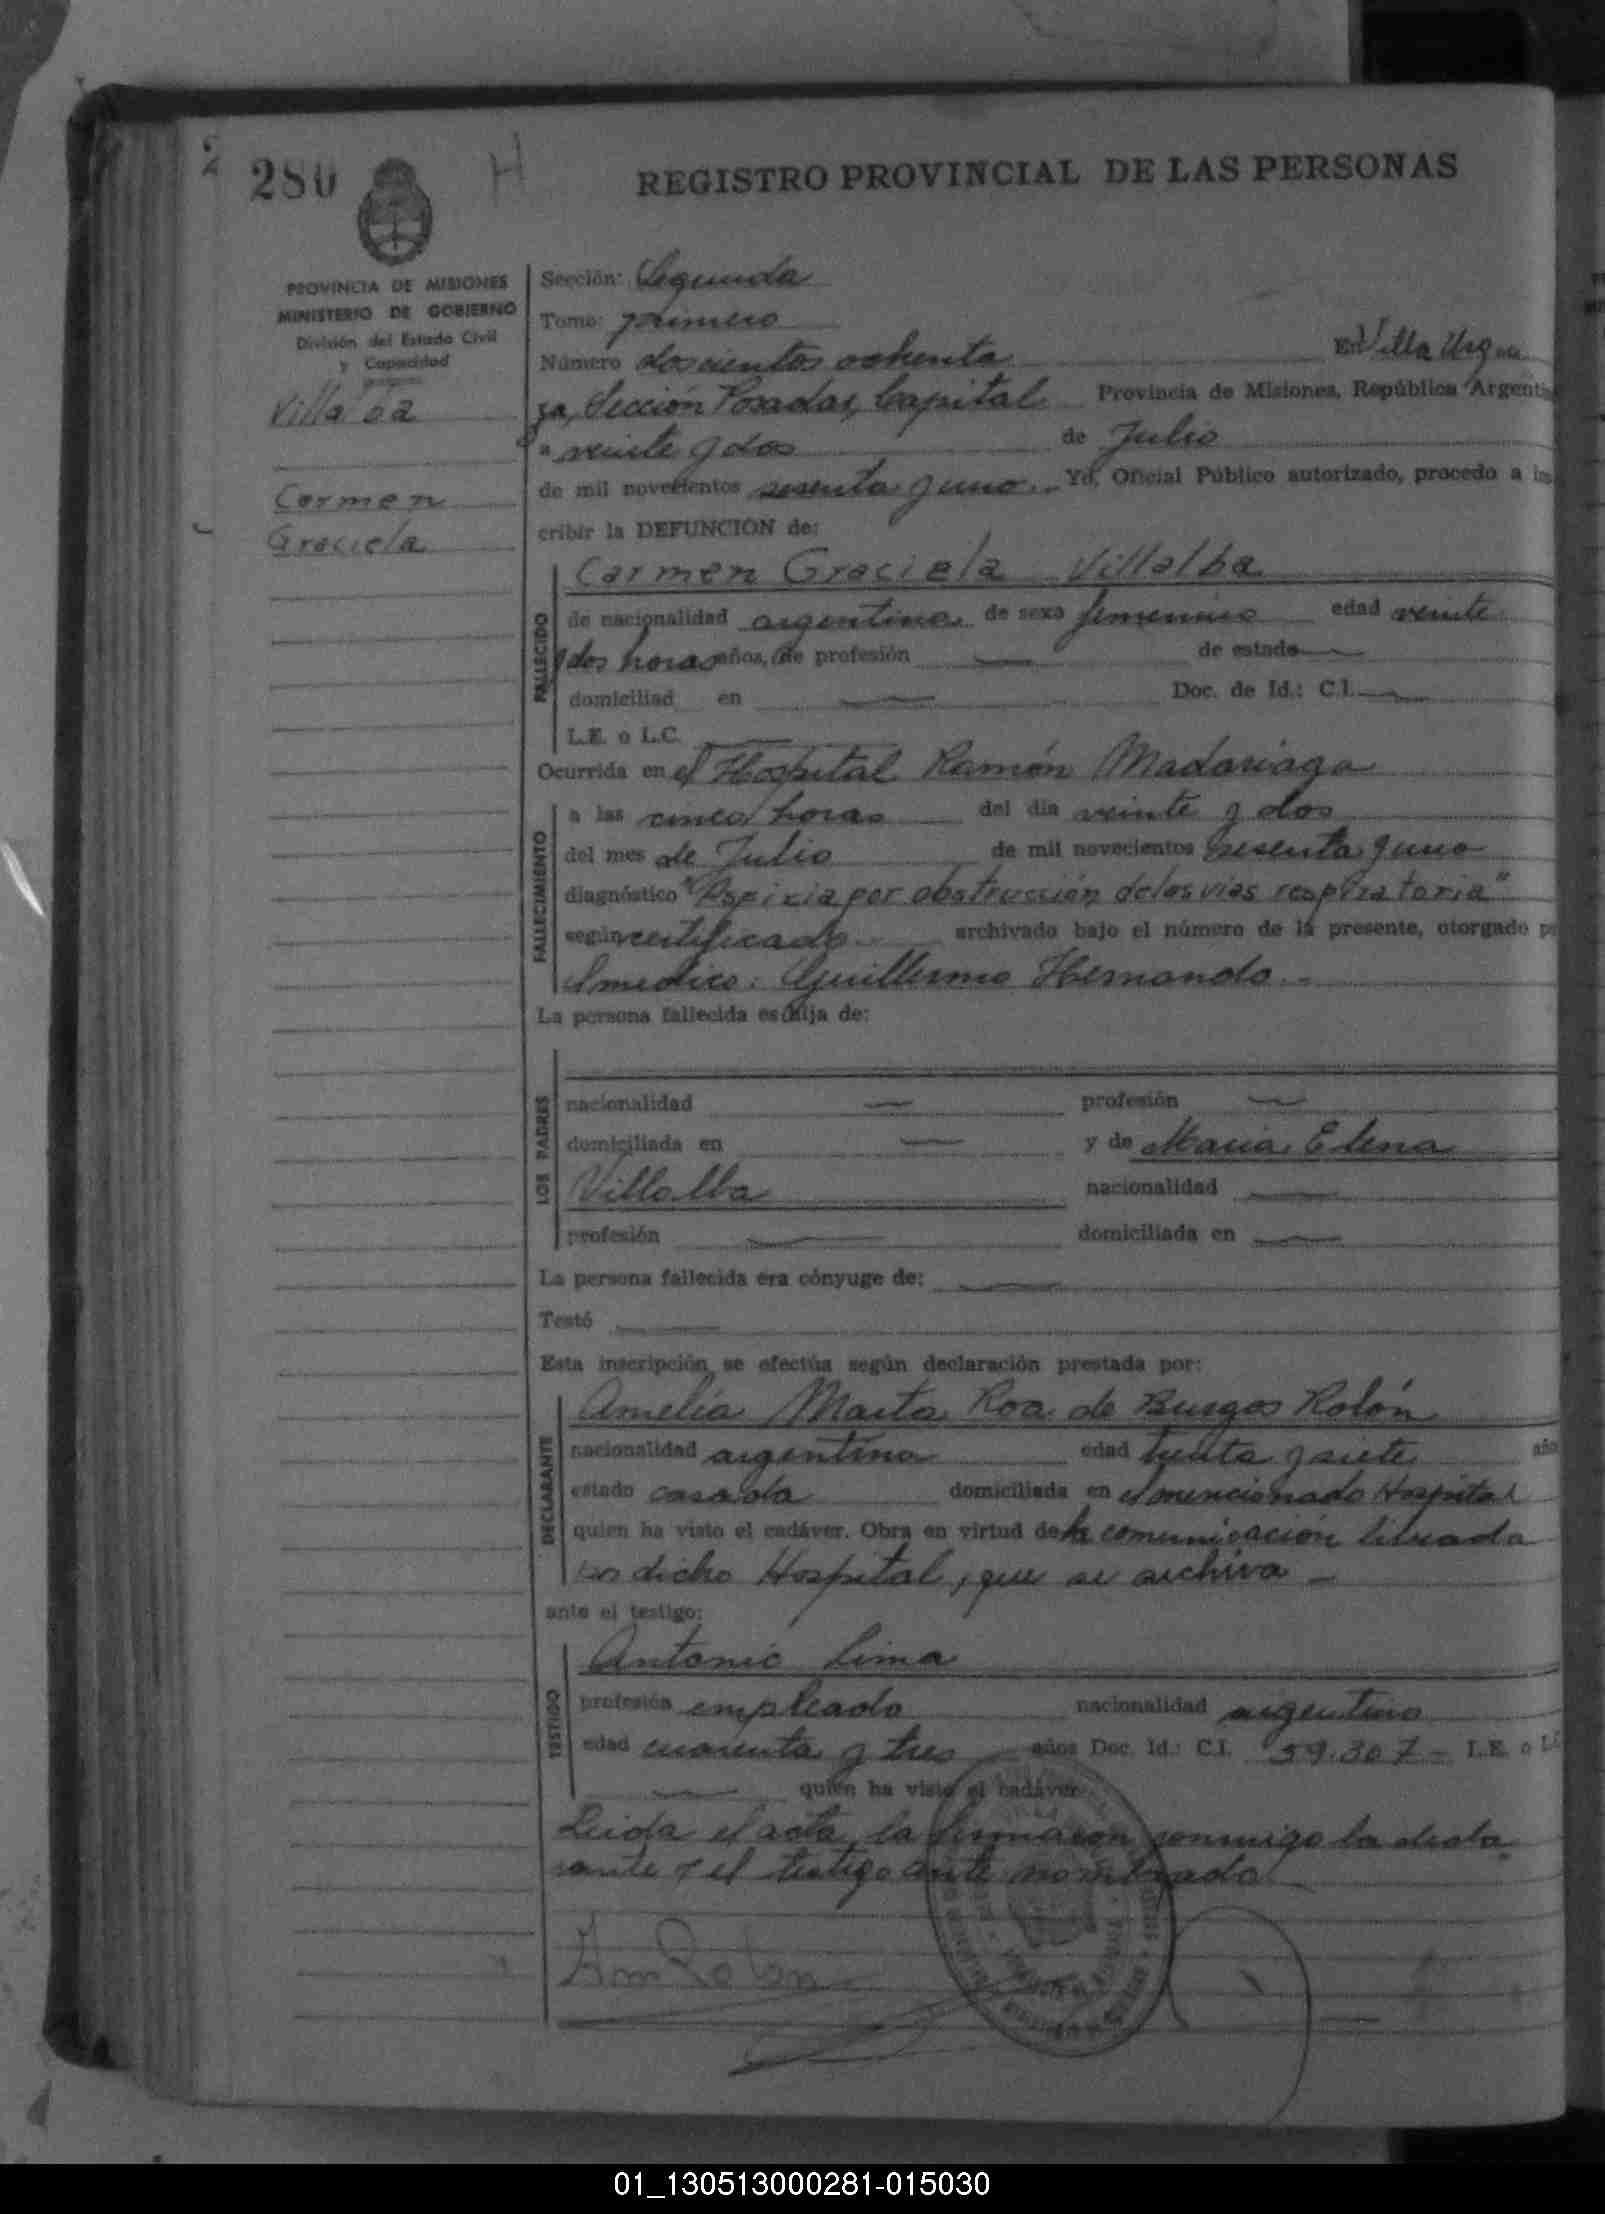 2
280
H
REGISTRO PROVINCIAL DE LAS PERSONAS
PROVINCIA DE MISIONES
MINISTERIO DE GOBIERNO
División del Estado Civil
y Capacidad
Villalba
Carmen
Graciela
Sección: Segunda
Tomo: primero
Número doscientos ochenta En Villa Urqui
za, Sección Posadas, Capital Provincia de Misiones, República Argenti
a veinte y dos de Julio
de mil novecientos sesenta y uno.- Yo, Oficial Público autorizado, procedo a ins
cribir la DEFUNCION de:
Carmen Graciela Villalba
FALLECIDO
de nacionalidad argentina de sexo femenino edad veinte
y dos horas años, de profesión — de estado —
domiciliad en — Doc. de Id.: C.I. —
L.E. o L.C. —
Ocurrida en el Hospital Ramón Madariaga
FALLECIMIENTO
a las cinco horas del día veinte y dos
del mes de Julio de mil novecientos sesenta y uno
diagnóstico "Asfixia por obstrucción de las vias respiratoria"
según certificado archivado bajo el número de la presente, otorgado p
el medico: Guillermo Hernando.-
La persona fallecida es hija de:
LOS PADRES
nacionalidad — profesión —
domiciliada en — y de Maria Elena
Villalba nacionalidad —
profesión — domiciliada en —
La persona fallecida era cónyuge de: —
Testó —
Esta inscripción se efectúa según declaración prestada por:
Amelia Marta Roa de Burgos Rolón
DECLARANTE
nacionalidad argentina edad treinta y siete año
estado casada domiciliada en el mencionado Hospital
quien ha visto el cadáver. Obra en virtud de la comunicación librada
por dicho Hospital, que se archiva -
ante el testigo:
Antonio Lima
TESTIGO
profesión empleado nacionalidad argentino
edad cuarenta y tres años Doc. Id.: C.I. 59.307 - L.E. o L
— quien ha visto el cadáver
Leida el acta, la firmaron conmigo la decla
rante y el testigo ante nombrado
01_130513000281-015030